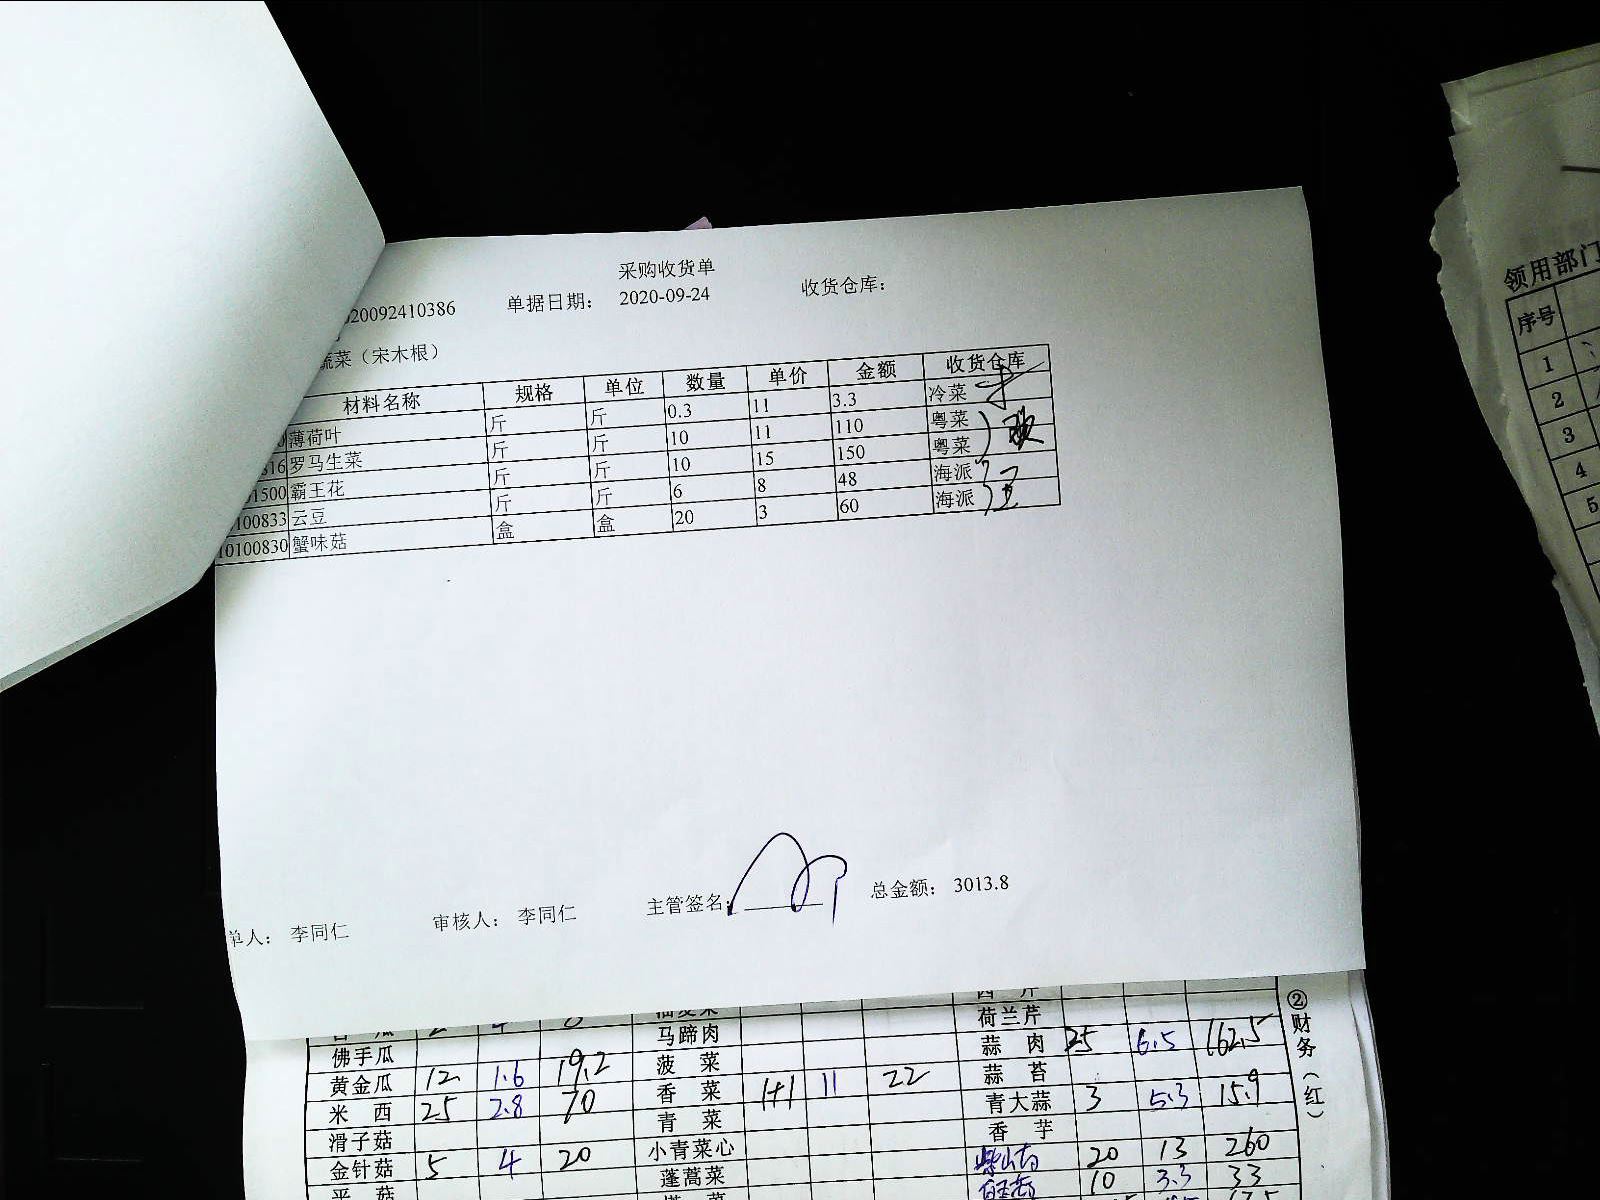 采购收货单
020092410386 单据日期： 2020-09-24 收货仓库：
蔬菜（宋木根）
材料名称 规格 单位 数量 单价 金额 收货仓库
0 薄荷叶 斤 斤 0.3 11 3.3 冷菜
816 罗马生菜 斤 斤 10 11 110 粤菜
01500 霸王花 斤 斤 10 15 150 粤菜
100833 云豆 斤 斤 6 8 48 海派
10100830 蟹味菇 盒 盒 20 3 60 海派
单人： 李同仁 审核人： 李同仁 主管签名： 总金额： 3013.8
荷兰芹
佛手瓜 马蹄肉 蒜 肉 25 6.5 162.5
黄金瓜 12 1.6 19.2 菠 菜 蒜 苔
米 西 25 2.8 70 香 菜 1+1 11 22 青大蒜 3 5.3 15.9
滑子菇 青 菜 香 芋
金针菇 5 4 20 小青菜心 20 13 260
平 菇 蓬蒿菜 10 3.3 33
②财务（红）
领用部门
序号
1
2
3
4
5